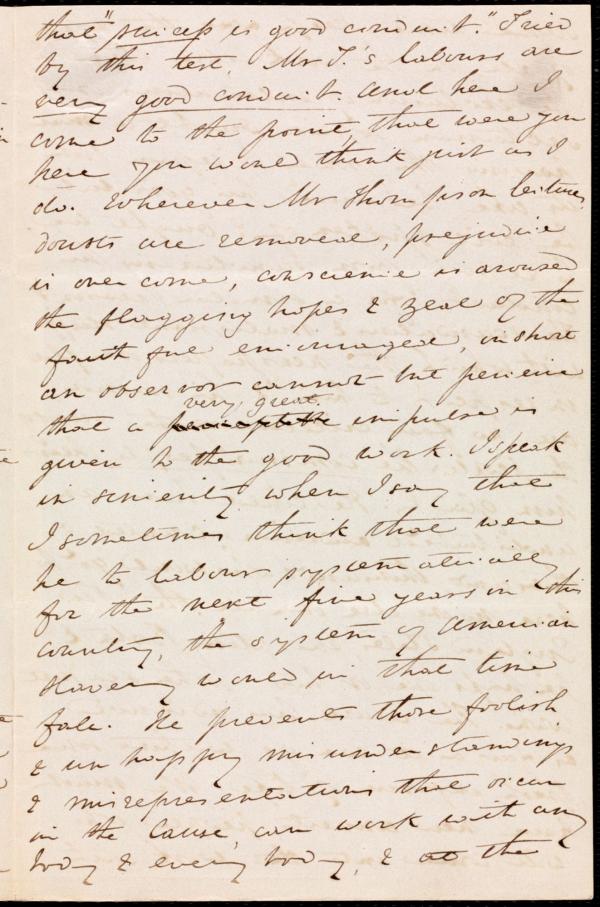 that "success is good conduct." Tried
by this test, Mr T.'s labours are
very good conduct. And here I
come to the point, that were you
here you would think just as I
do. Wherever Mr Thompson lectures
doubts are removed, prejudice
is overcome, conscience is aroused
the flagging hopes & zeal of the
faithful encouraged, in short
an observor cannot but perceive
very great
that a perceptible impulse is
given to the good work. I speak
in sincerity when I say that
I sometimes think that were
he to labour systematically
for the next five years in this
country, the system of American
Slavery would in that time
fall. He prevents those foolish
& unhappy misunderstandings
& misrepresentations that occur
in the Cause, can work with any
body & every body, & at the